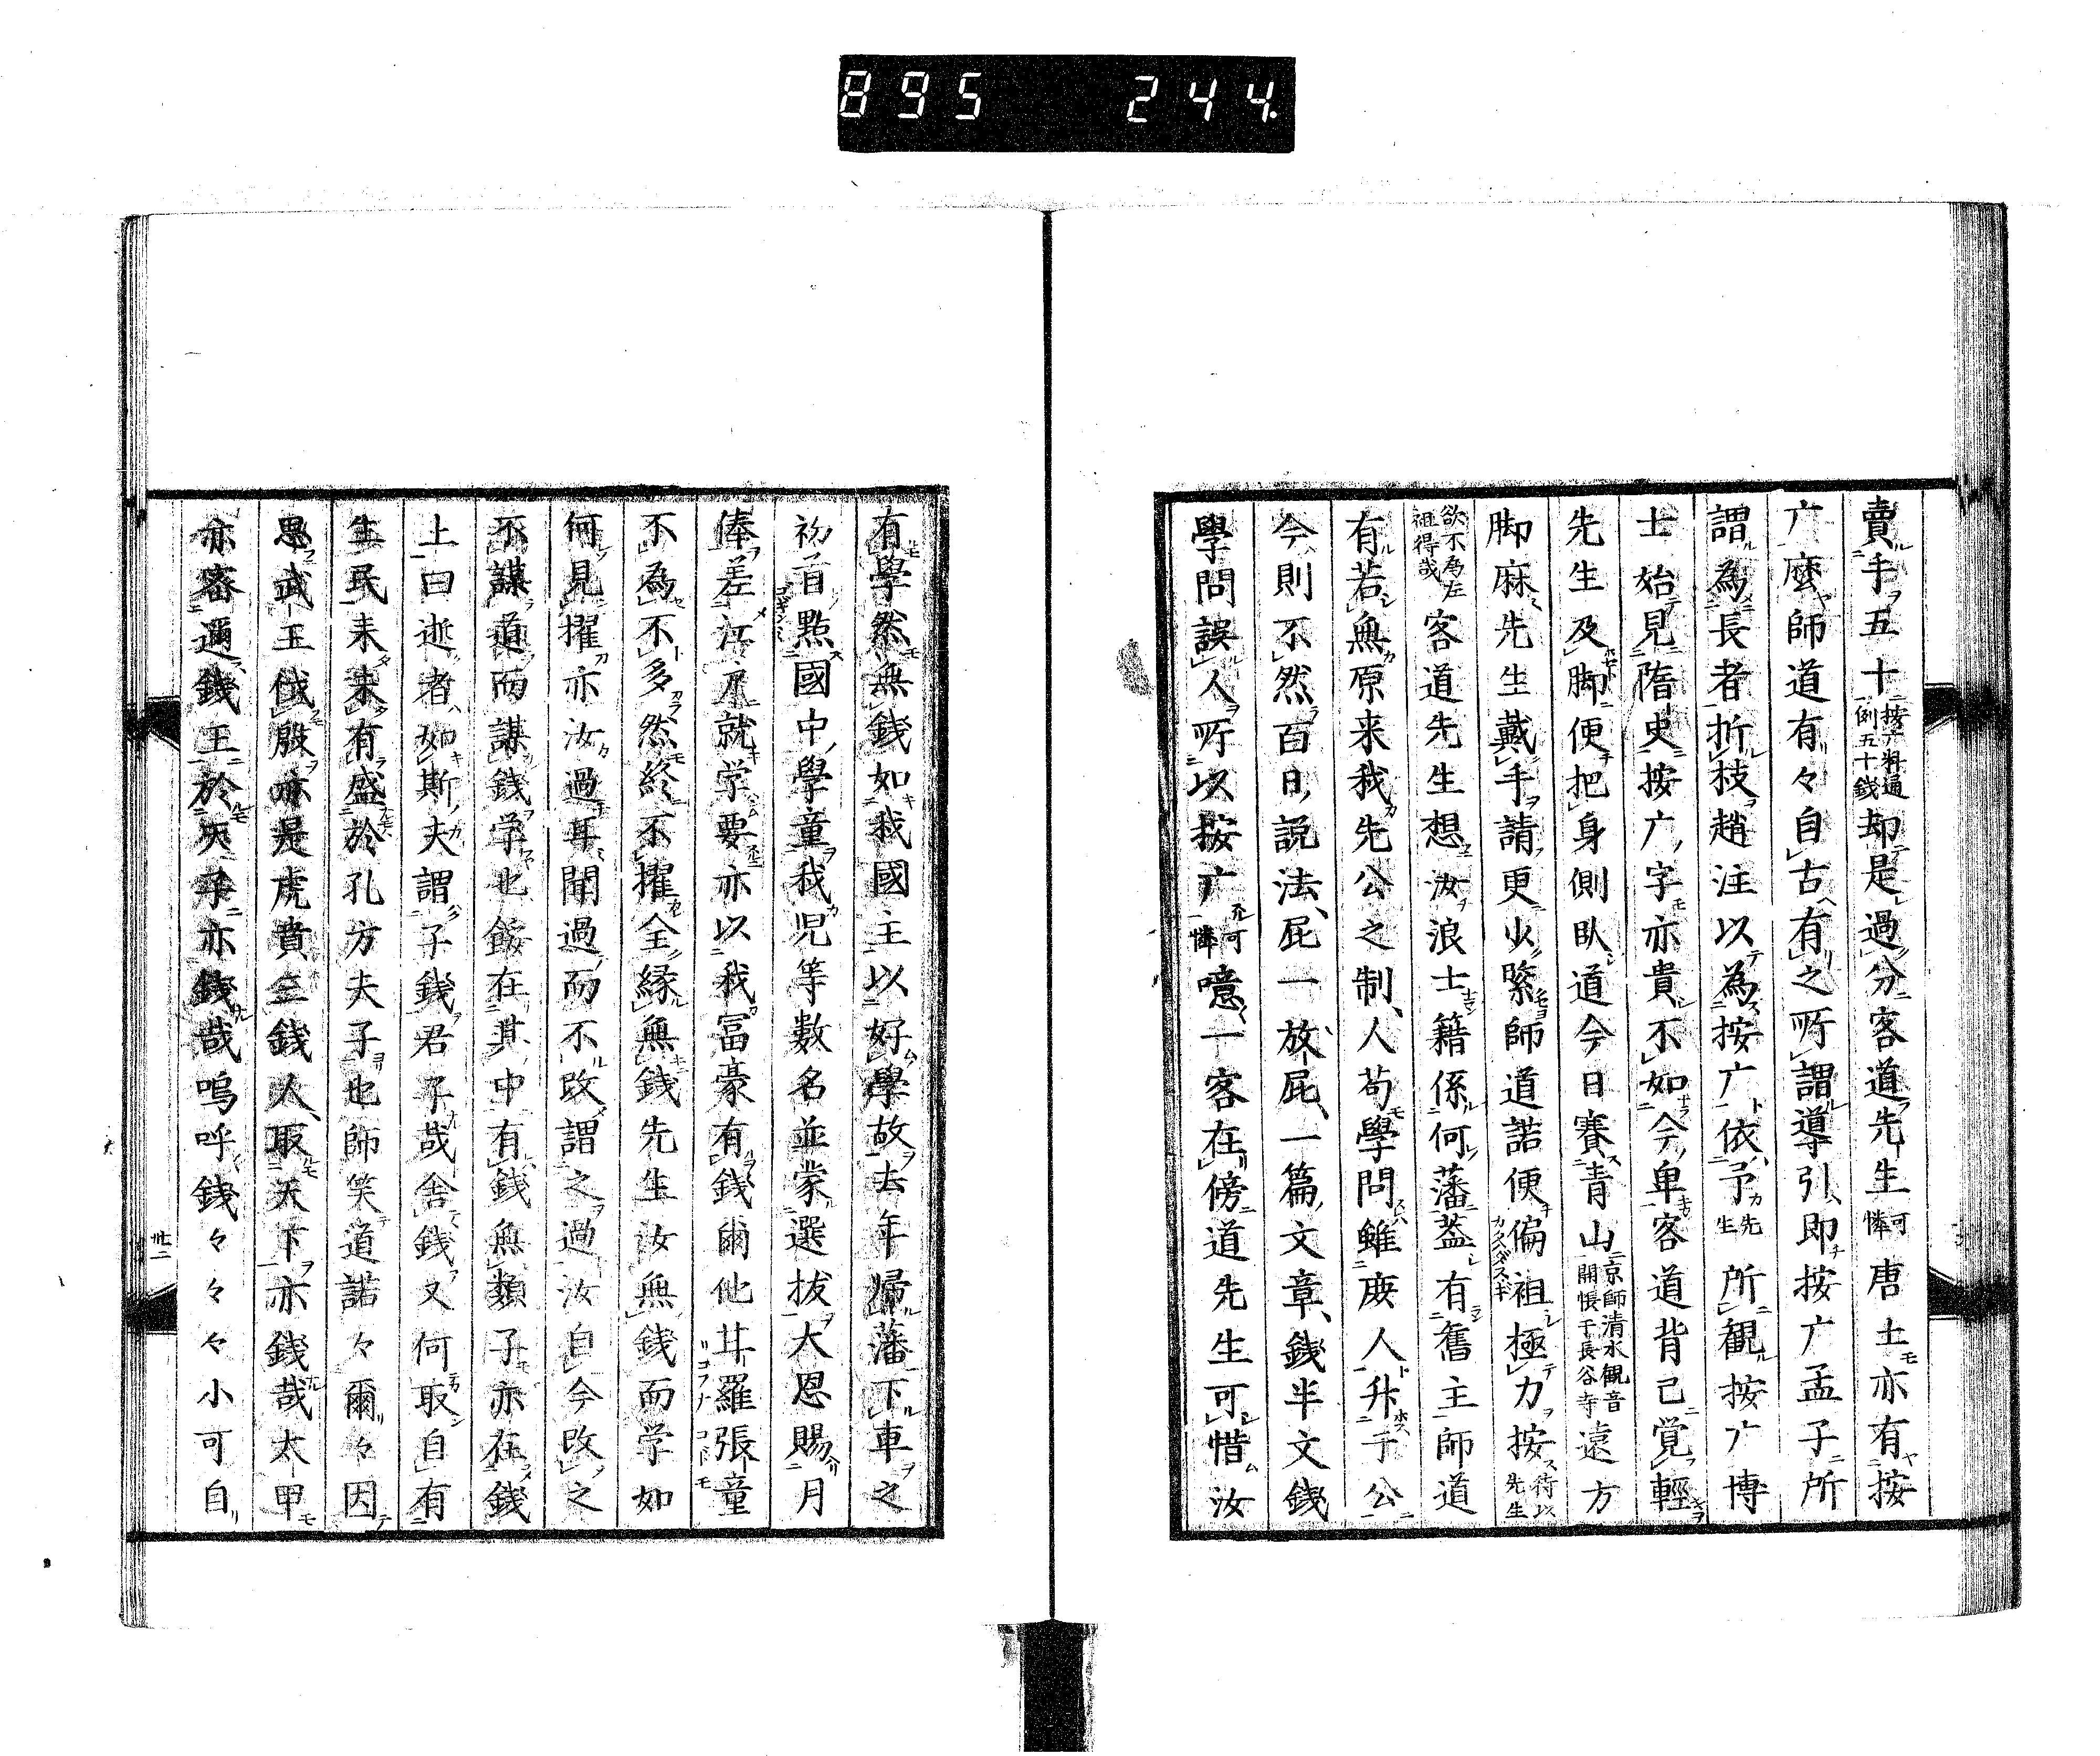 895 244
賣手五十按广料通例五十錢却是過分客道先生可憐唐土亦有按
广麼師道有々自古有之所謂導引即按广孟子所
謂為長者折枝趙注以為按广依予先生所觀按广博
士始見隋史按广字亦貴不如今卑客道背己覚輕
先生及脚便把身側臥道今日賽青山京師清水観音開帳于長谷寺遠方
脚麻先生戴手請更少緊師道諾便偏袒極力按待以先生
欲不為左袒得哉客道先生想汝浪士籍係何藩蓋有舊主師道
有若無原来我先公之制人苟學問雖庾人升于公
今則不然百日説法屁一放屁一篇文章錢半文錢
學問誤人所以按广可憐噫一客在傍道先生可惜汝
有學然無錢如我國主以好學故去年帰藩下車之
初首點國中學童我児等数名並蒙選抜大恩賜月
俸差江戸就学要亦以我冨豪有錢爾他丼羅張童
不為不多然終不擢全縁無錢先生汝無錢而学如
何見擢亦汝過耳聞過而不改謂之過汝自今改之
不謀道而謀錢学也餒在其中有錢無類子亦在錢
上曰逝者如斯夫謂子錢君子哉舎錢又何取自有
生民未来有盛於孔方夫子也師笑道諾々爾々因
思武王伐殷亦是虎賁三錢人取天下亦錢哉太甲
亦審邇錢王於天子亦錢哉嗚呼錢々々々小可自
卅二